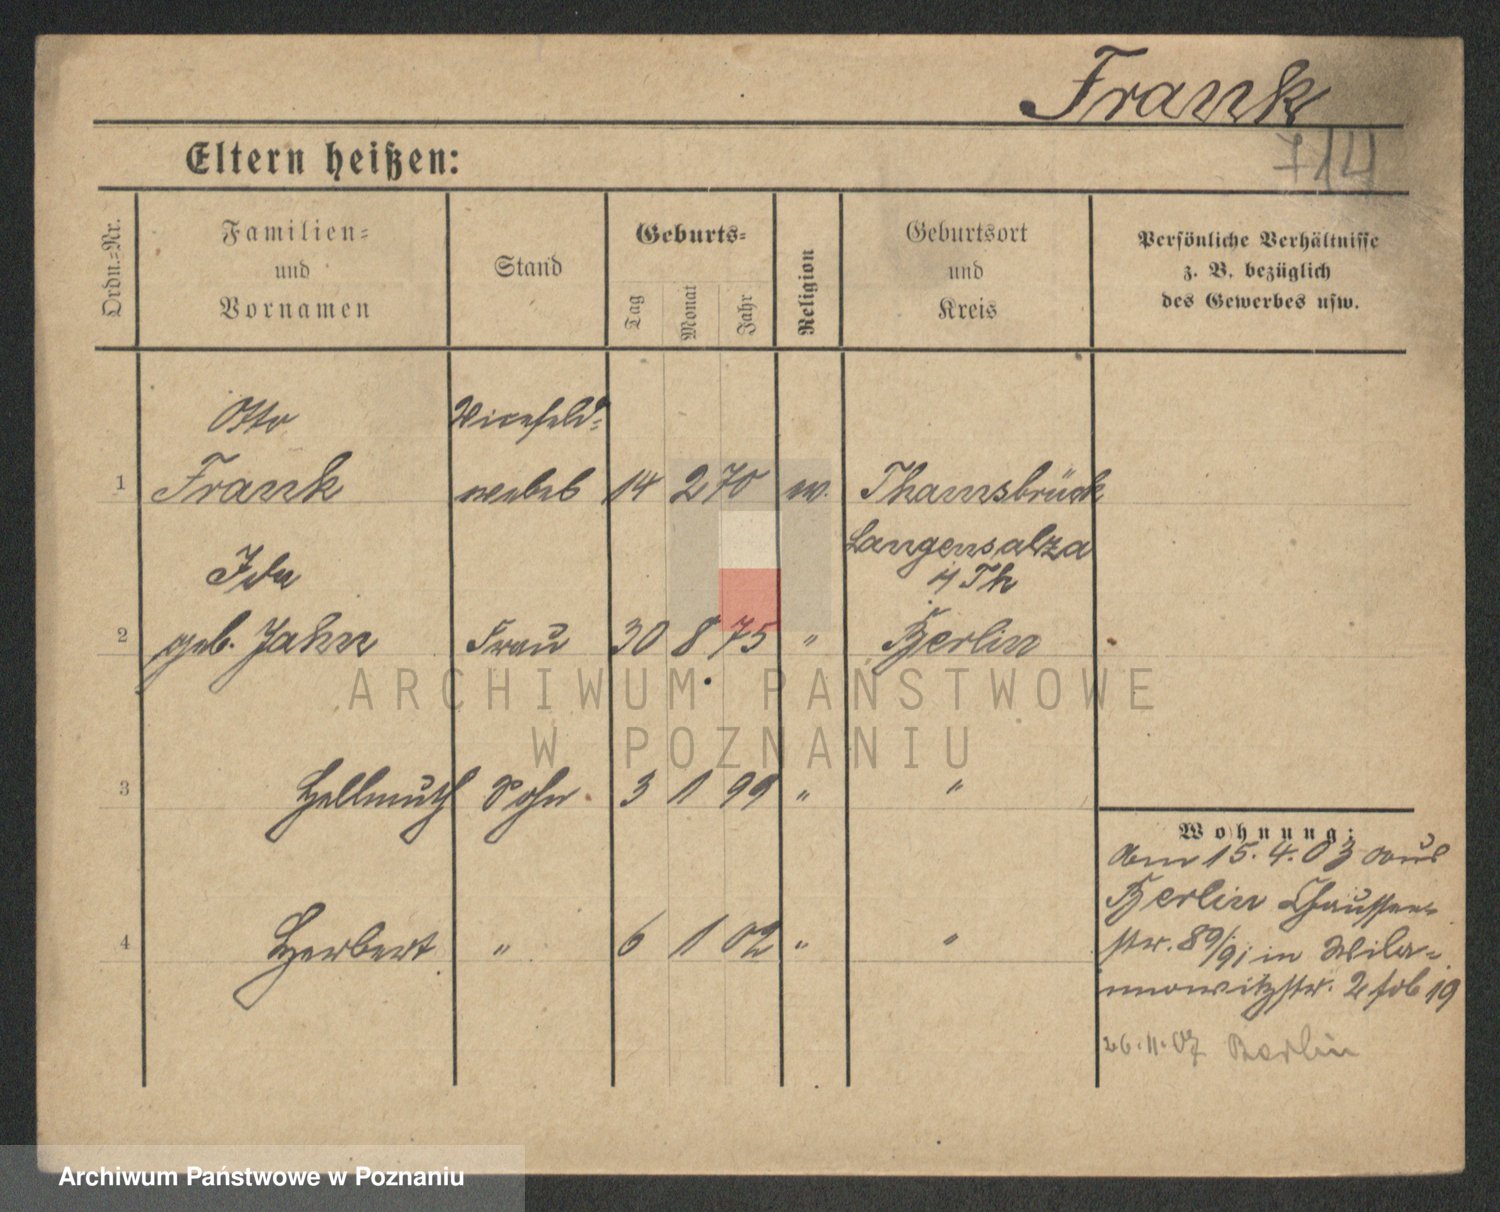 Frank
714
Eltern heißen:
Ordn.-Nr.
Familien-
und
Vornamen
Stand
Geburts-
Tag
Monat
Jahr
Religion
Geburtsort
und
Kreis
Persönliche Verhältnisse
z. B. bezüglich
des Gewerbes usw.
Otto Vicefeld-
1 Frank webel 14 2 70 ev. Thamsbrück
Langensalza
Ida i/ Th
2 geb. Jahn Frau 30 8 75 " Berlin
ARCHIWUM PAŃSTWOWE
W POZNANIU
3 Hellmuth Sohn 3 1 99 " "
4 Herbert " 6 1 02 " "
Wohnung:
Am 15.4.03 aus
Berlin Chaussee-
str. 89/91 in Wila-
mowitzstr. 2 19
26.11.07 Berlin
Archiwum Państwowe w Poznaniu